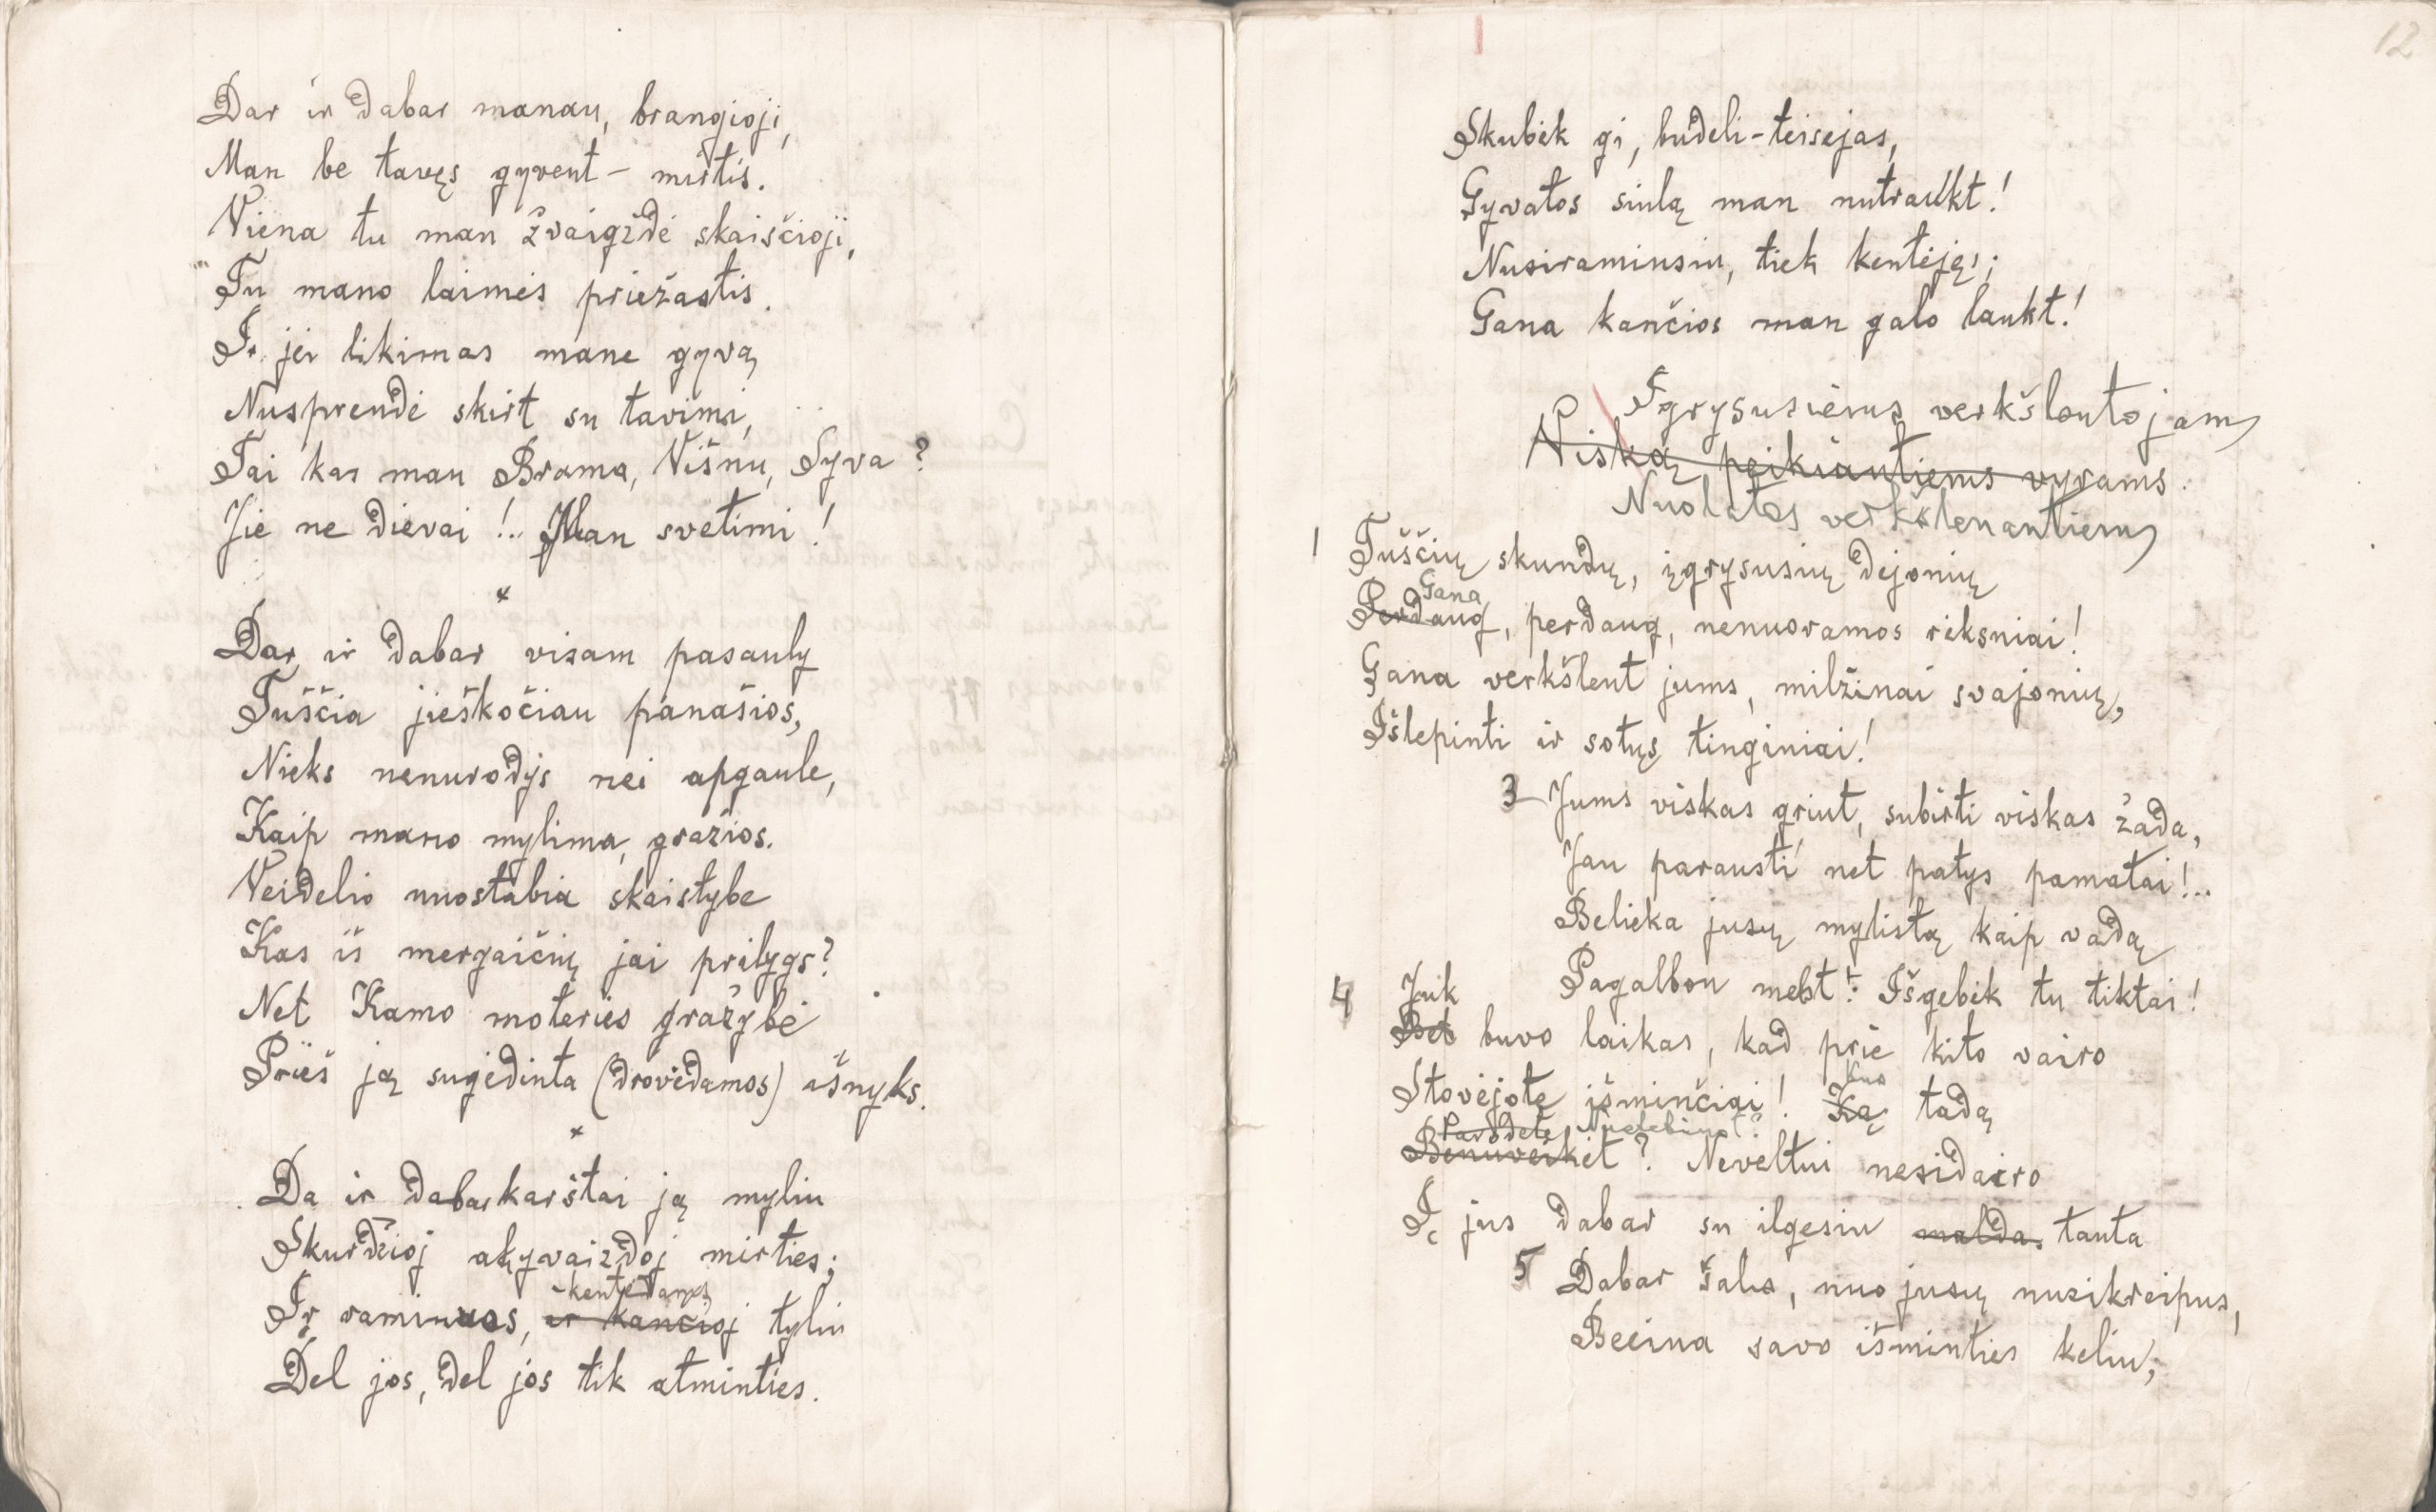 Dar ir dabar manau, brangioji,
Man be tavęs gyvent – mirtis.
Viena tu man žvaigždė skaisčioji,
Tu mano laimės priežastis.
Ir jei likimas mane gyvą
Nusprendė skirt su tavimi,
Tai kas man Brama, Višnu, Syva?
Jie ne dievai!.. Man svetimi!
×
Dar ir dabar visam pasauly
Tuščia jieškočiau panašios,
Nieks nenurodys nei apgaule,
Kaip mano mylima, gražios.
Veidelio nuostabia skaistybe
Kas iš mergaičių jai prilygs?
Net Kamo moteries gražybė
Prieš ją sugėdinta (drovėdamos) išnyks.
×
Da ir dabar karštai ją myliu
Skurdžioj akyvaizdoj mirties;
kentėdamas
Ir raminuos, ir kančioj tyliu
Del jos, del jos tik atminties.
12
Skubėk gi, budeli-teisėjas,
Gyvatos siulą man nutraukt!
Nusiraminsiu, tiek kentėjęs;
Gana kančios man galo laukt!
Įgrysusiems verkšlentojams
Viską peikiantiems vyrams
Nuolatos verkšlenantiems
1 Tuščių skundų, įgrysusių dejonių
Gana
Perdaug, perdaug, nenuoramos rėksniai!
Gana verkšlent jums, milžinai svajonių,
Išlepinti ir sotųs tinginiai!
3 Jums viskas griut, subirti viskas žada,
Jau parausti net patys pamatai!..
Belieka jusų mylistą kaip vadą
Pagalbon melst: Išgebėk tu tiktai!
4 Juk
Bet buvo laikas, kad prie kito vairo
Stovėjote išminčiai! Ką tadą
Parodėte
Benuveikėt? Neveltui nesidairo
Į jus dabar su ilgesiu malda tauta
5 Dabar šalis, nuo jusų nusikreipus,
Beeina savo išminties keliu;